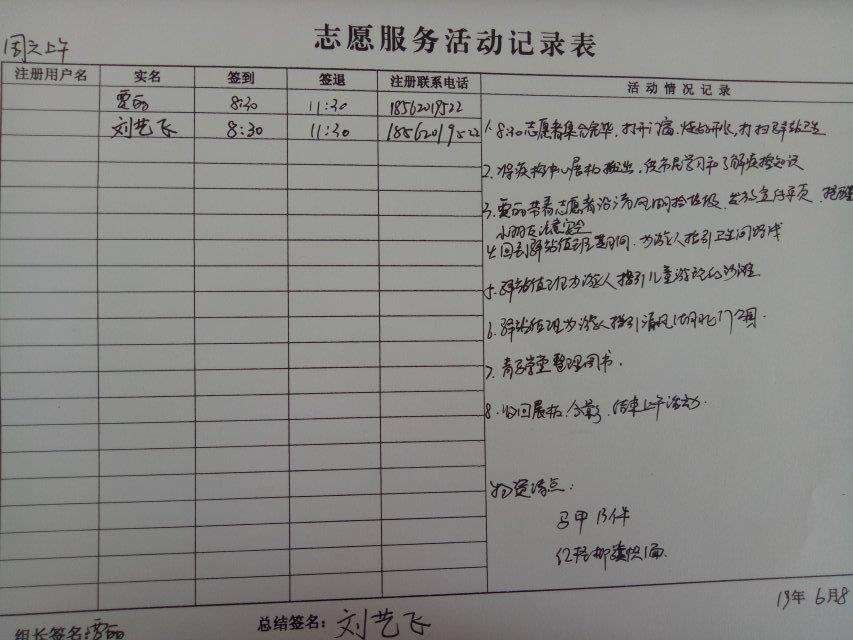 志愿服务活动记录表
周六上午
注册用户名 实名 签到 签退 注册联系电话 活动情况记录
贾丽 8:30 11:30 18562019522
刘艺飞 8:30 11:30 18562019522
1. 8:30志愿者集合完毕,打开门窗,烧好开水,打扫驿站卫生
2. 将疾控中心展板搬出,供市民学习和了解疾控知识
3. 贾丽带着志愿者沿清风湖捡垃圾,发放宣传单页,提醒
小朋友注意安全
4. 回到驿站值班期间,为游人指引卫生间路线
5. 驿站值班为游人指引儿童游玩的沙滩
6. 驿站值班为游人指引清风湖北门
7. 青子学堂整理图书.
8. 收回展板,合影,结束上午活动.
物资清点:
马甲13件
红 1面.
19年6月8
组长签名:贾丽
总结签名:刘艺飞